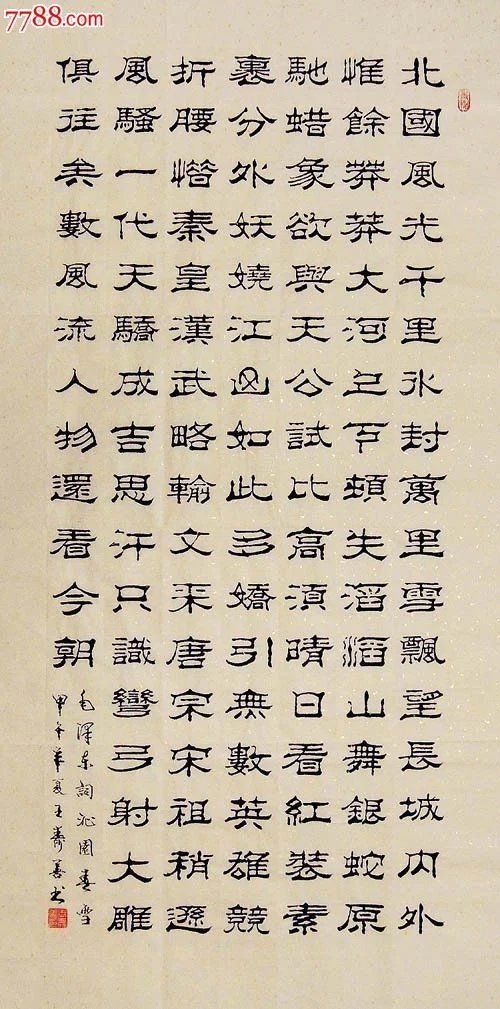 7788.com
北國風光千里氷封萬里雪飄望長城内外
惟餘莽莽大河上下頓失滔滔山舞銀蛇原
馳蜡象欲與天公試比高須晴日看紅裝素
裹分外妖嬈江山如此多嬌引無數英雄競
折腰惜秦皇漢武略輸文采唐宗宋祖稍遜
風騷一代天驕成吉思汗只識彎弓射大雕
俱往矣數風流人物還看今朝
毛澤东詞沁園春雪
甲午夏王善书